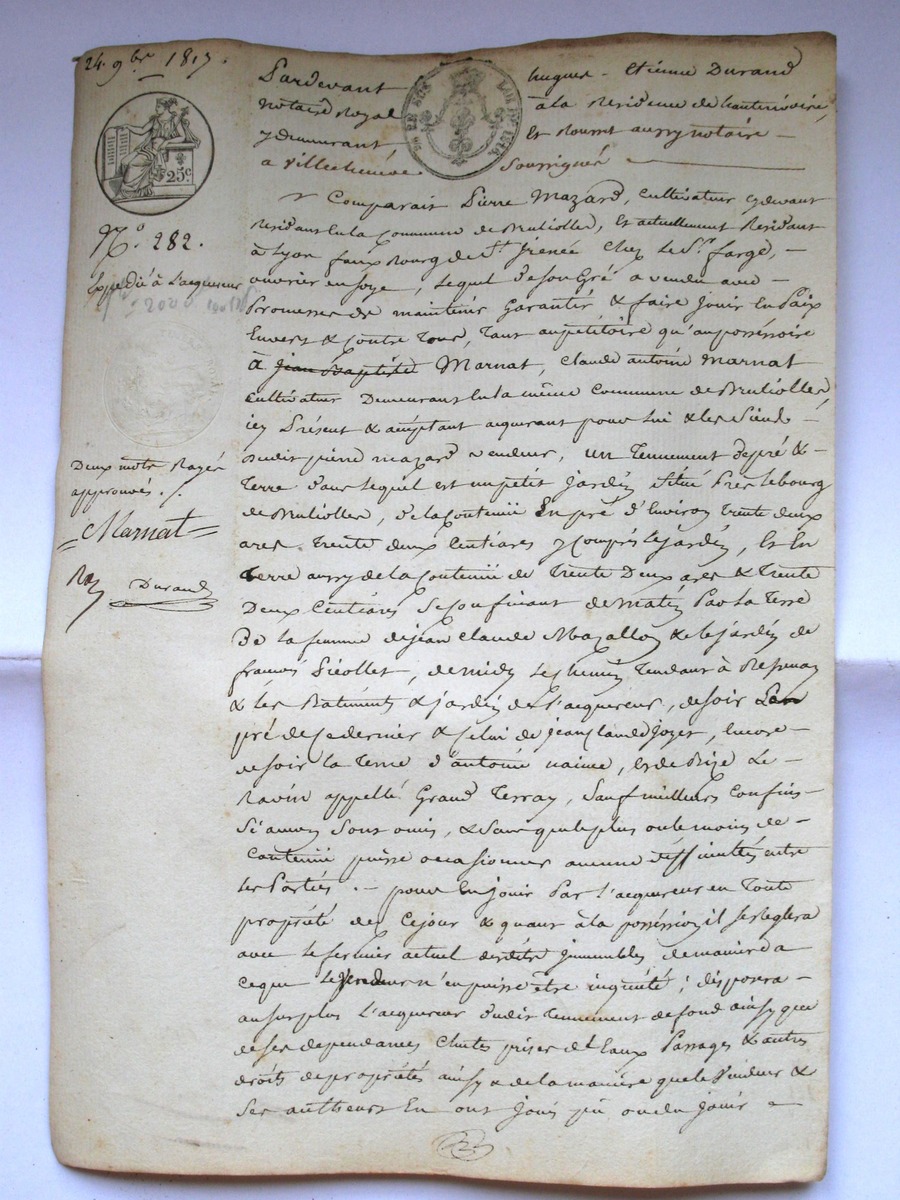 24. 9bre 1817.
25c
No. 282.
Expédié à l'acquereur
2000
Deux mots Rayés
approuvés ./.
=Marnat=
Durand
Pardevant hugues - Etienne Durand
notaire Royal à la Residence de hauterivoire
y demeurant Et Rourret aussy notaire -
a villechenéve Soussignés
Comparait Pierre Mazard, cultivateur cydevant
Residant En la Commune de Brulliolles, Et actuellement Residant
à Lyon faux bourg de St. irénée chez le Sr. farge, -
ouvrier en soye, lequel de son Gré a vendu avec -
Promesses de maintenir Garantir & faire Jouir En Paix
Envers & Contre Tous, Tant au petitoire qu'au posséssoire
à Jean Baptiste Marnat, Claude antoine Marnat
cultivateur Demeurant En la même Commune de Brulliolles,
icy Présent & acceptant acquerant pour Lui & les Siens -
dudit pierre mazard vendeur, un Tennement de pré & -
Terre dans lequel est un petit Jardin Situé Près le bourg
de Brulliolles, de la Contenue En pré d'Environ Trente deux
ares Trente deux Centiares y Compris le Jardin, Et En
Terre aussy de la Contenue de Trente Deux ares & Trente
Deux Centiares Se Confinant de matin Par La Terre
De la femme de jean Claude Mazallon & le jardin de
francois Piéollet, de midy le chemin Tendant à
& les Batiments & jardin de l'acquereur, de soir Par
pré de ce dernier & celui de jean Claude Joyet, encore -
de soir la Terre d'antoine, & de Bize Le -
Ravin appellé Grand Terray, Sauf meilleurs Confins -
Si aucuns Sont omis, & Sans que le plus ou le moins de -
Contenue puisse occasionner aucune difficultés entre
les Parties. - pour En jouir Par l'acquereur en Toute
propriété de ce jour & quant à la posséssion il se réglera
avec le fermier actuel desdits immeubles de maniere a
ce que le Vendeur n'en puisse être inquiété; disposera -
au surplus l'acquereur dudit Tennement de fond ainsy que
de ses dependances Chutes prises d'Eaux Passages & autres
droits de propriétés ainsy & de la maniére que le Vendeur &
Ses autheurs En ont Joui pû ou du Jouir -